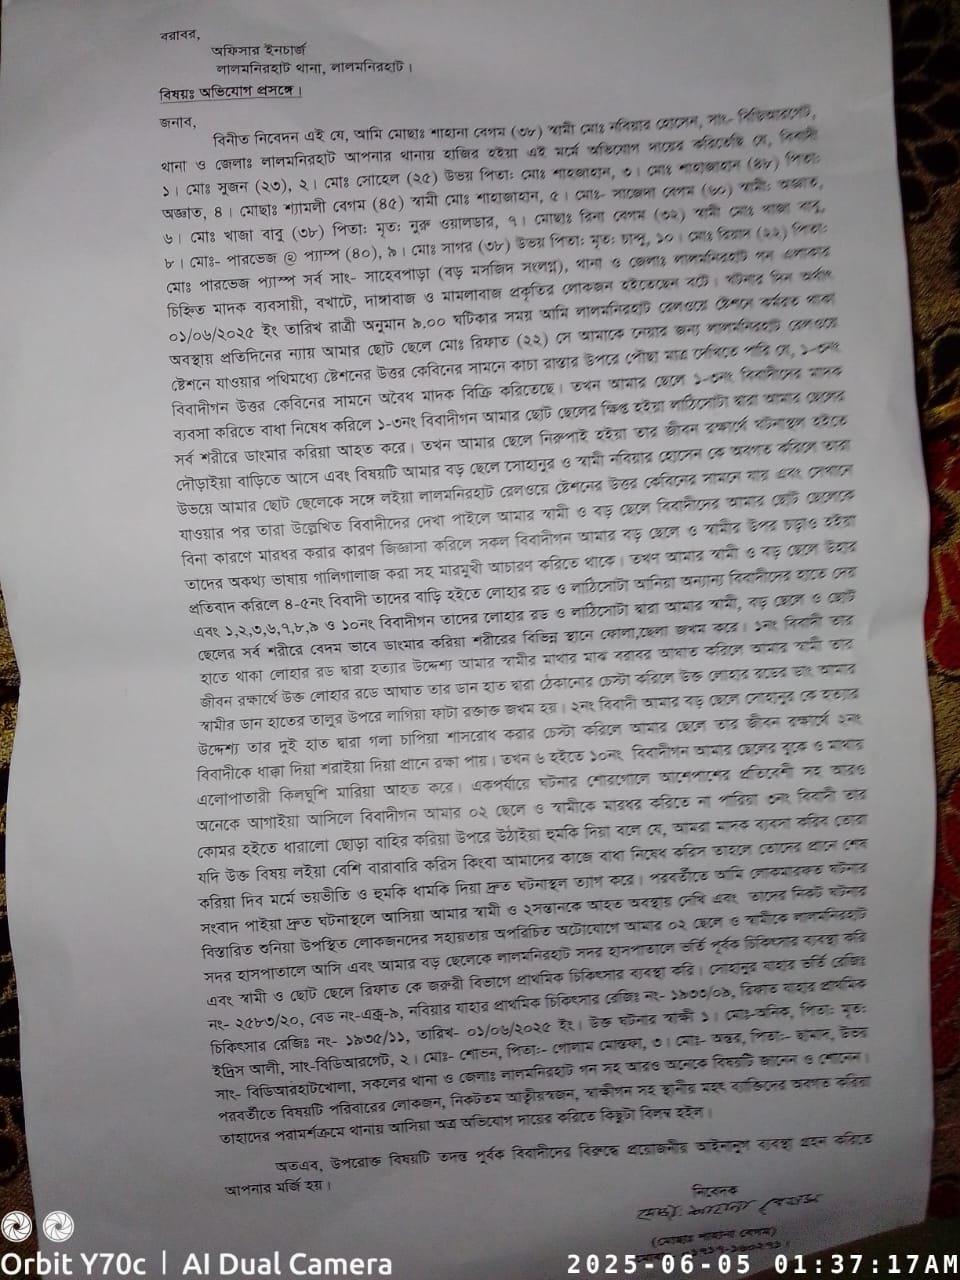 বরাবর,
অফিসার ইনচার্জ
লালমনিরহাট থানা, লালমনিরহাট।
বিষয়ঃ অভিযোগ প্রসঙ্গে।
জনাব,
বিনীত নিবেদন এই যে, আমি মোছাঃ শাহানা বেগম (৩৮) স্বামী মোঃ নবিয়ার হোসেন, সাং- বিডিআরগেট,
থানা ও জেলাঃ লালমনিরহাট আপনার থানায় হাজির হইয়া এই মর্মে অভিযোগ দায়ের করিতেছি যে, বিবাদী
১। মোঃ সুজন (২৩), ২। মোঃ সোহেল (২৫) উভয় পিতাঃ মোঃ শাহজাহান, ৩। মোঃ শাহাজাহান (৪৮) পিতাঃ
অজ্ঞাত, ৪। মোছাঃ শ্যামলী বেগম (৪৫) স্বামী মোঃ শাহাজাহান, ৫। মোঃ- সাজেদা বেগম (৬০) স্বামীঃ অজ্ঞাত,
৬। মোঃ খাজা বাবু (৩৮) পিতাঃ মৃতঃ নুরু ওয়ালডার, ৭। মোছাঃ রিনা বেগম (৩২) স্বামী মোঃ খাজা বাবু,
৮। মোঃ- পারভেজ @ প্যাম্প (৪০), ৯। মোঃ সাগর (৩৮) উভয় পিতাঃ মৃতঃ চান্দু, ১০। মোঃ রিয়াদ (২২) পিতাঃ
মোঃ পারভেজ প্যাম্প সর্ব সাং- সাহেবপাড়া (বড় মসজিদ সংলগ্ন), থানা ও জেলাঃ লালমনিরহাট গন এলাকার
চিহ্নিত মাদক ব্যবসায়ী, বখাটে, দাঙ্গাবাজ ও মামলাবাজ প্রকৃতির লোকজন হইতেছেন বটে। ঘটনার দিন অর্থাৎ
০১/০৬/২০২৫ ইং তারিখ রাত্রী অনুমান ৯.০০ ঘটিকার সময় আমি লালমনিরহাট রেলওয়ে ষ্টেশনে কর্মরত থাকা
অবস্থায় প্রতিদিনের ন্যায় আমার ছোট ছেলে মোঃ রিফাত (২২) সে আমাকে নেয়ার জন্য লালমনিরহাট রেলওয়ে
ষ্টেশনে যাওয়ার পথিমধ্যে ষ্টেশনের উত্তর কেবিনের সামনে কাচা রাস্তার উপরে পৌছা মাত্র দেখিতে পারি যে, ১-৩নং
বিবাদীগন উত্তর কেবিনের সামনে অবৈধ মাদক বিক্রি করিতেছে। তখন আমার ছেলে ১-৩নং বিবাদীদের মাদক
ব্যবসা করিতে বাধা নিষেধ করিলে ১-৩নং বিবাদীগন আমার ছোট ছেলের ক্ষিপ্ত হইয়া লাঠিসোটা দ্বারা আমার ছেলের
সর্ব শরীরে ডাংমার করিয়া আহত করে। তখন আমার ছেলে নিরুপাই হইয়া তার জীবন রক্ষার্থে ঘটনাস্থল হইতে
দৌড়াইয়া বাড়িতে আসে এবং বিষয়টি আমার বড় ছেলে সোহানুর ও স্বামী নবিয়ার হোসেন কে অবগত করিলে তারা
উভয়ে আমার ছোট ছেলেকে সঙ্গে লইয়া লালমনিরহাট রেলওয়ে ষ্টেশনের উত্তর কেবিনের সামনে যায় এবং সেখানে
যাওয়ার পর তারা উল্লেখিত বিবাদীদের দেখা পাইলে আমার স্বামী ও বড় ছেলে বিবাদীদের আমার ছোট ছেলেকে
বিনা কারণে মারধর করার কারণ জিজ্ঞাসা করিলে সকল বিবাদীগন আমার বড় ছেলে ও স্বামীর উপর চড়াও হইয়া
তাদের অকথ্য ভাষায় গালিগালাজ করা সহ মারমুখী আচারণ করিতে থাকে। তখণ আমার স্বামী ও বড় ছেলে উহার
প্রতিবাদ করিলে ৪-৫নং বিবাদী তাদের বাড়ি হইতে লোহার রড ও লাঠিসোটা আনিয়া অন্যান্য বিবাদীদের হাতে দেয়
এবং ১,২,৩,৬,৭,৮,৯ ও ১০নং বিবাদীগন তাদের লোহার রড ও লাঠিসোটা দ্বারা আমার স্বামী, বড় ছেলে ও ছোট
ছেলের সর্ব শরীরে বেদম ভাবে ডাংমার করিয়া শরীরের বিভিন্ন স্থানে ফোলা,ছেলা জখম করে। ১নং বিবাদী তার
হাতে থাকা লোহার রড দ্বারা হত্যার উদ্দেশ্য আমার স্বামীর মাথার মাঝ বরাবর আঘাত করিলে আমার স্বামী তার
জীবন রক্ষার্থে উক্ত লোহার রডে আঘাত তার ডান হাত দ্বারা ঠেকানোর চেস্টা করিলে উক্ত লোহার রডের ডাং আমার
স্বামীর ডান হাতের তালুর উপরে লাগিয়া ফাটা রক্তাক্ত জখম হয়। ২নং বিবাদী আমার বড় ছেলে সোহানুর কে হত্যার
উদ্দেশ্য তার দুই হাত দ্বারা গলা চাপিয়া শাসরোধ করার চেস্টা করিলে আমার ছেলে তার জীবন রক্ষার্থে ২নং
বিবাদীকে ধাক্কা দিয়া শরাইয়া দিয়া প্রানে রক্ষা পায়। তখন ৬ হইতে ১০নং বিবাদীগন আমার ছেলের বুকে ও মাথায়
এলোপাতারী কিলঘুশি মারিয়া আহত করে। একপর্যায়ে ঘটনার শোরগোলে আশেপাশের প্রতিবেশী সহ আরও
অনেকে আগাইয়া আসিলে বিবাদীগন আমার ০২ ছেলে ও স্বামীকে মারধর করিতে না পারিয়া ৩নং বিবাদী তার
কোমর হইতে ধারালো ছোড়া বাহির করিয়া উপরে উঠাইয়া হুমকি দিয়া বলে যে, আমরা মাদক ব্যবসা করিব তোরা
যদি উক্ত বিষয় লইয়া বেশি বারাবারি করিস কিংবা আমাদের কাজে বাধা নিষেধ করিস তাহলে তোদের প্রানে শেষ
করিয়া দিব মর্মে ভয়ভীতি ও হুমকি ধামকি দিয়া দ্রুত ঘটনাস্থল ত্যাগ করে। পরবর্তীতে আমি লোকমারফত ঘটনার
সংবাদ পাইয়া দ্রুত ঘটনাস্থলে আসিয়া আমার স্বামী ও ২সন্তানকে আহত অবস্থায় দেখি এবং তাদের নিকট ঘটনার
বিস্তারিত শুনিয়া উপস্থিত লোকজনদের সহায়তায় অপরিচিত অটোযোগে আমার ০২ ছেলে ও স্বামীকে লালমনিরহাট
সদর হাসপাতালে আসি এবং আমার বড় ছেলেকে লালমনিরহাট সদর হাসপাতালে ভর্তি পূর্বক চিকিৎসার ব্যবস্থা করি
এবং স্বামী ও ছোট ছেলে রিফাত কে জরুরী বিভাগে প্রাথমিক চিকিৎসার ব্যবস্থা করি। সোহানুর যাহার ভর্তি রেজিঃ
নং- ২৫৮৩/২০, বেড নং-এক্স-৯, নবিয়ার যাহার প্রাথমিক চিকিৎসার রেজিঃ নং- ১৯৩৩/০৯, রিফাত যাহার প্রাথমিক
চিকিৎসার রেজিঃ নং- ১৯৩৫/১১, তারিখ- ০১/০৬/২০২৫ ইং। উক্ত ঘটনার স্বাক্ষী ১। মোঃ-অনিক, পিতাঃ মৃতঃ
ইদ্রিস আলী, সাং-বিডিআরগেট, ২। মোঃ- শোভন, পিতাঃ- গোলাম মোস্তফা, ৩। মোঃ- অন্তর, পিতাঃ- হামিদ, উভয়
সাং- বিডিআরহাটখোলা, সকলের থানা ও জেলাঃ লালমনিরহাট গন সহ আরও অনেকে বিষয়টি জানেন ও শোনেন।
পরবর্তীতে বিষয়টি পরিবারের লোকজন, নিকটতম আত্মীয়স্বজন, স্বাক্ষীগন সহ স্থানীয় মহৎ ব্যক্তিদের অবগত করিয়া
তাহাদের পরামর্শক্রমে থানায় আসিয়া অত্র অভিযোগ দায়ের করিতে কিছুটা বিলম্ব হইল।
অতএব, উপরোক্ত বিষয়টি তদন্ত পূর্বক বিবাদীদের বিরুদ্ধে প্রয়োজনীয় আইনানুগ ব্যবস্থা গ্রহন করিতে
আপনার মর্জি হয়।
নিবেদক
মোছাঃ শাহানা বেগম
(মোছাঃ শাহানা বেগম)
Orbit Y70c | AI Dual Camera
2025-06-05 01:37:17AM